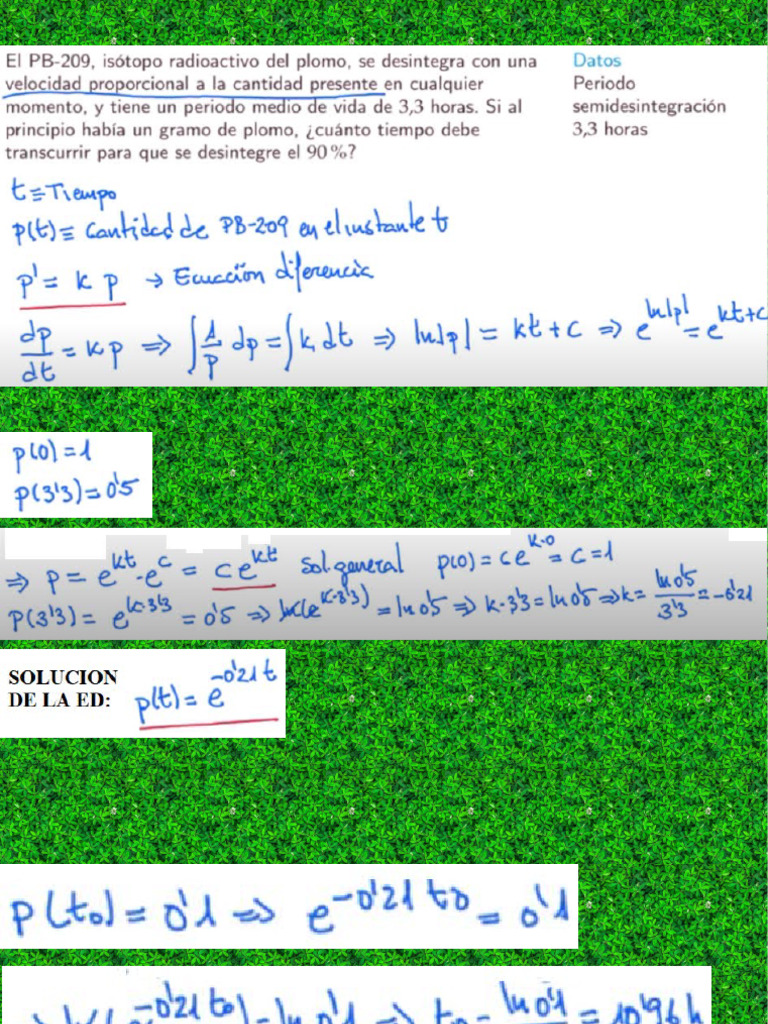 El PB-209, isótopo radioactivo del plomo, se desintegra con una
velocidad proporcional a la cantidad presente en cualquier
momento, y tiene un periodo medio de vida de 3,3 horas. Si al
principio había un gramo de plomo, ¿cuánto tiempo debe
transcurrir para que se desintegre el 90 %?
Datos
Periodo
semidesintegración
3,3 horas
t ≡ Tiempo
p(t) ≡ Cantidad de PB-209 en el instante t
p' = k p → Ecuación diferencia
dp/dt = k p ⇒ ∫ 1/p dp = ∫ k dt ⇒ ln|p| = kt + c ⇒ e^ln|p| = e^kt+c
p(0) = 1
p(3'3) = 0'5
⇒ p = e^kt · e^c = c e^kt Sol. general p(0) = c e^k·0 = c = 1
P(3'3) = e^k·3'3 = 0'5 ⇒ ln(e^k·3'3) = ln 0'5 ⇒ k·3'3 = ln 0'5 ⇒ k = ln 0'5 / 3'3 = -0'21
SOLUCION
DE LA ED: p(t) = e^-0'21 t
p(t0) = 0'1 ⇒ e^-0'21 t0 = 0'1
e^-0'21 t0) = ln 0'1 ⇒ t0 = ln 0'1 = 10'96 h